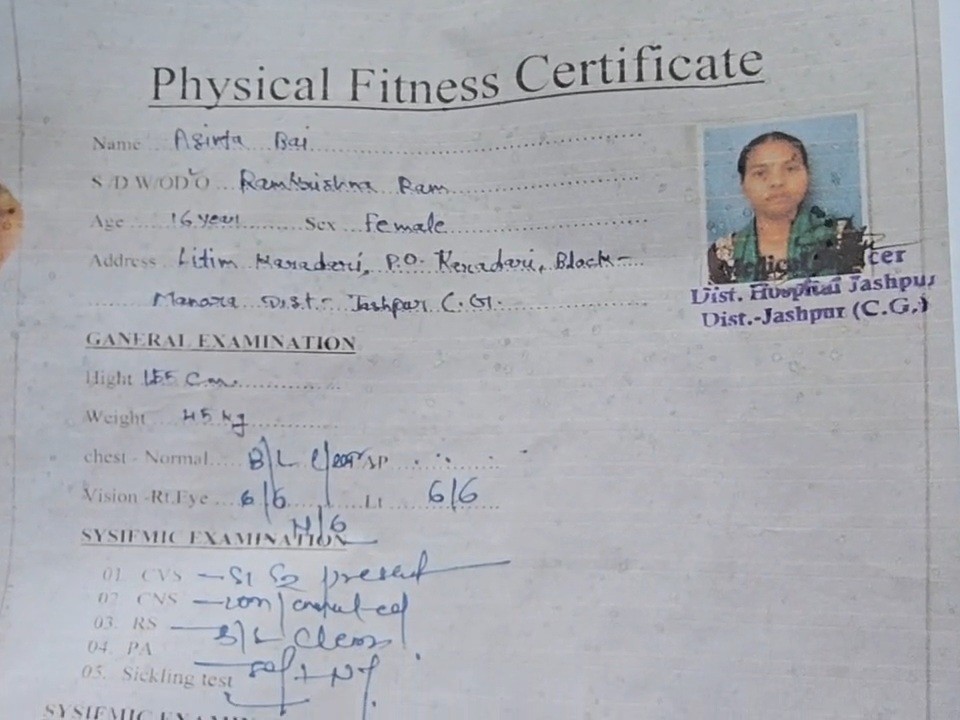 Physical Fitness Certificate
Name Asinta Bai
S/D W/O D/O Ramkrishna Ram
Age 16 year Sex Female
Address Litim Maradari, P.O. Keradari, Block-
Manora Dist- Jashpur C.G.
Medical cer
Dist. Hospital Jashpur
Dist.-Jashpur (C.G.)
GANERAL EXAMINATION
Hight 155 cm
Weight 45 kg
chest - Normal B/L clear AP
Vision -Rt.Eye 6/6 Lt 6/6
N/6
SYSIEMIC EXAMINATION
01. CVS - S1 S2 present
02. CNS - con/
03. RS - B/L Clear
04. PA - soft + NT
05. Sickling test
SYSIEMIC EXAMIN